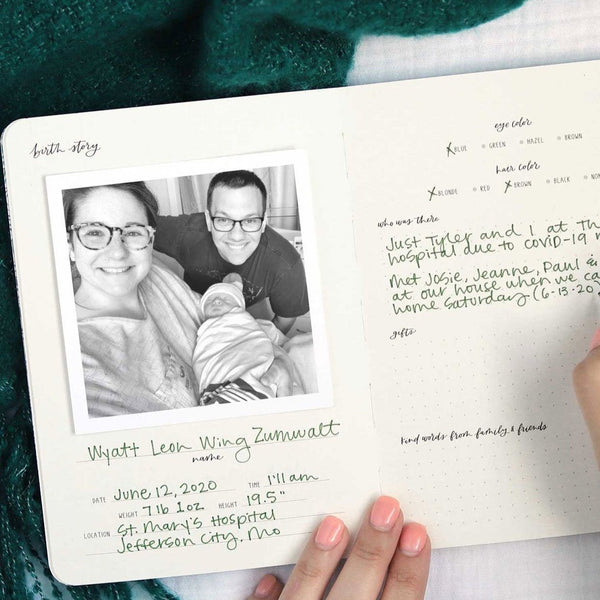 birth story
Wyatt Leon Wing Zumwalt
name
DATE June 12, 2020 TIME 1:11 am
WEIGHT 7 lb 1 oz HEIGHT 19.5"
LOCATION St. Mary's Hospital
Jefferson City, Mo
eye color
BLUE GREEN HAZEL BROWN
hair color
BLONDE RED BROWN BLACK
who was there
Just Tyler and I at
hospital due to COVID-19
Met Josie, Jeanne, Paul &
at our house when we
home Saturday (6-13-20)
gifts
kind words from family & friends